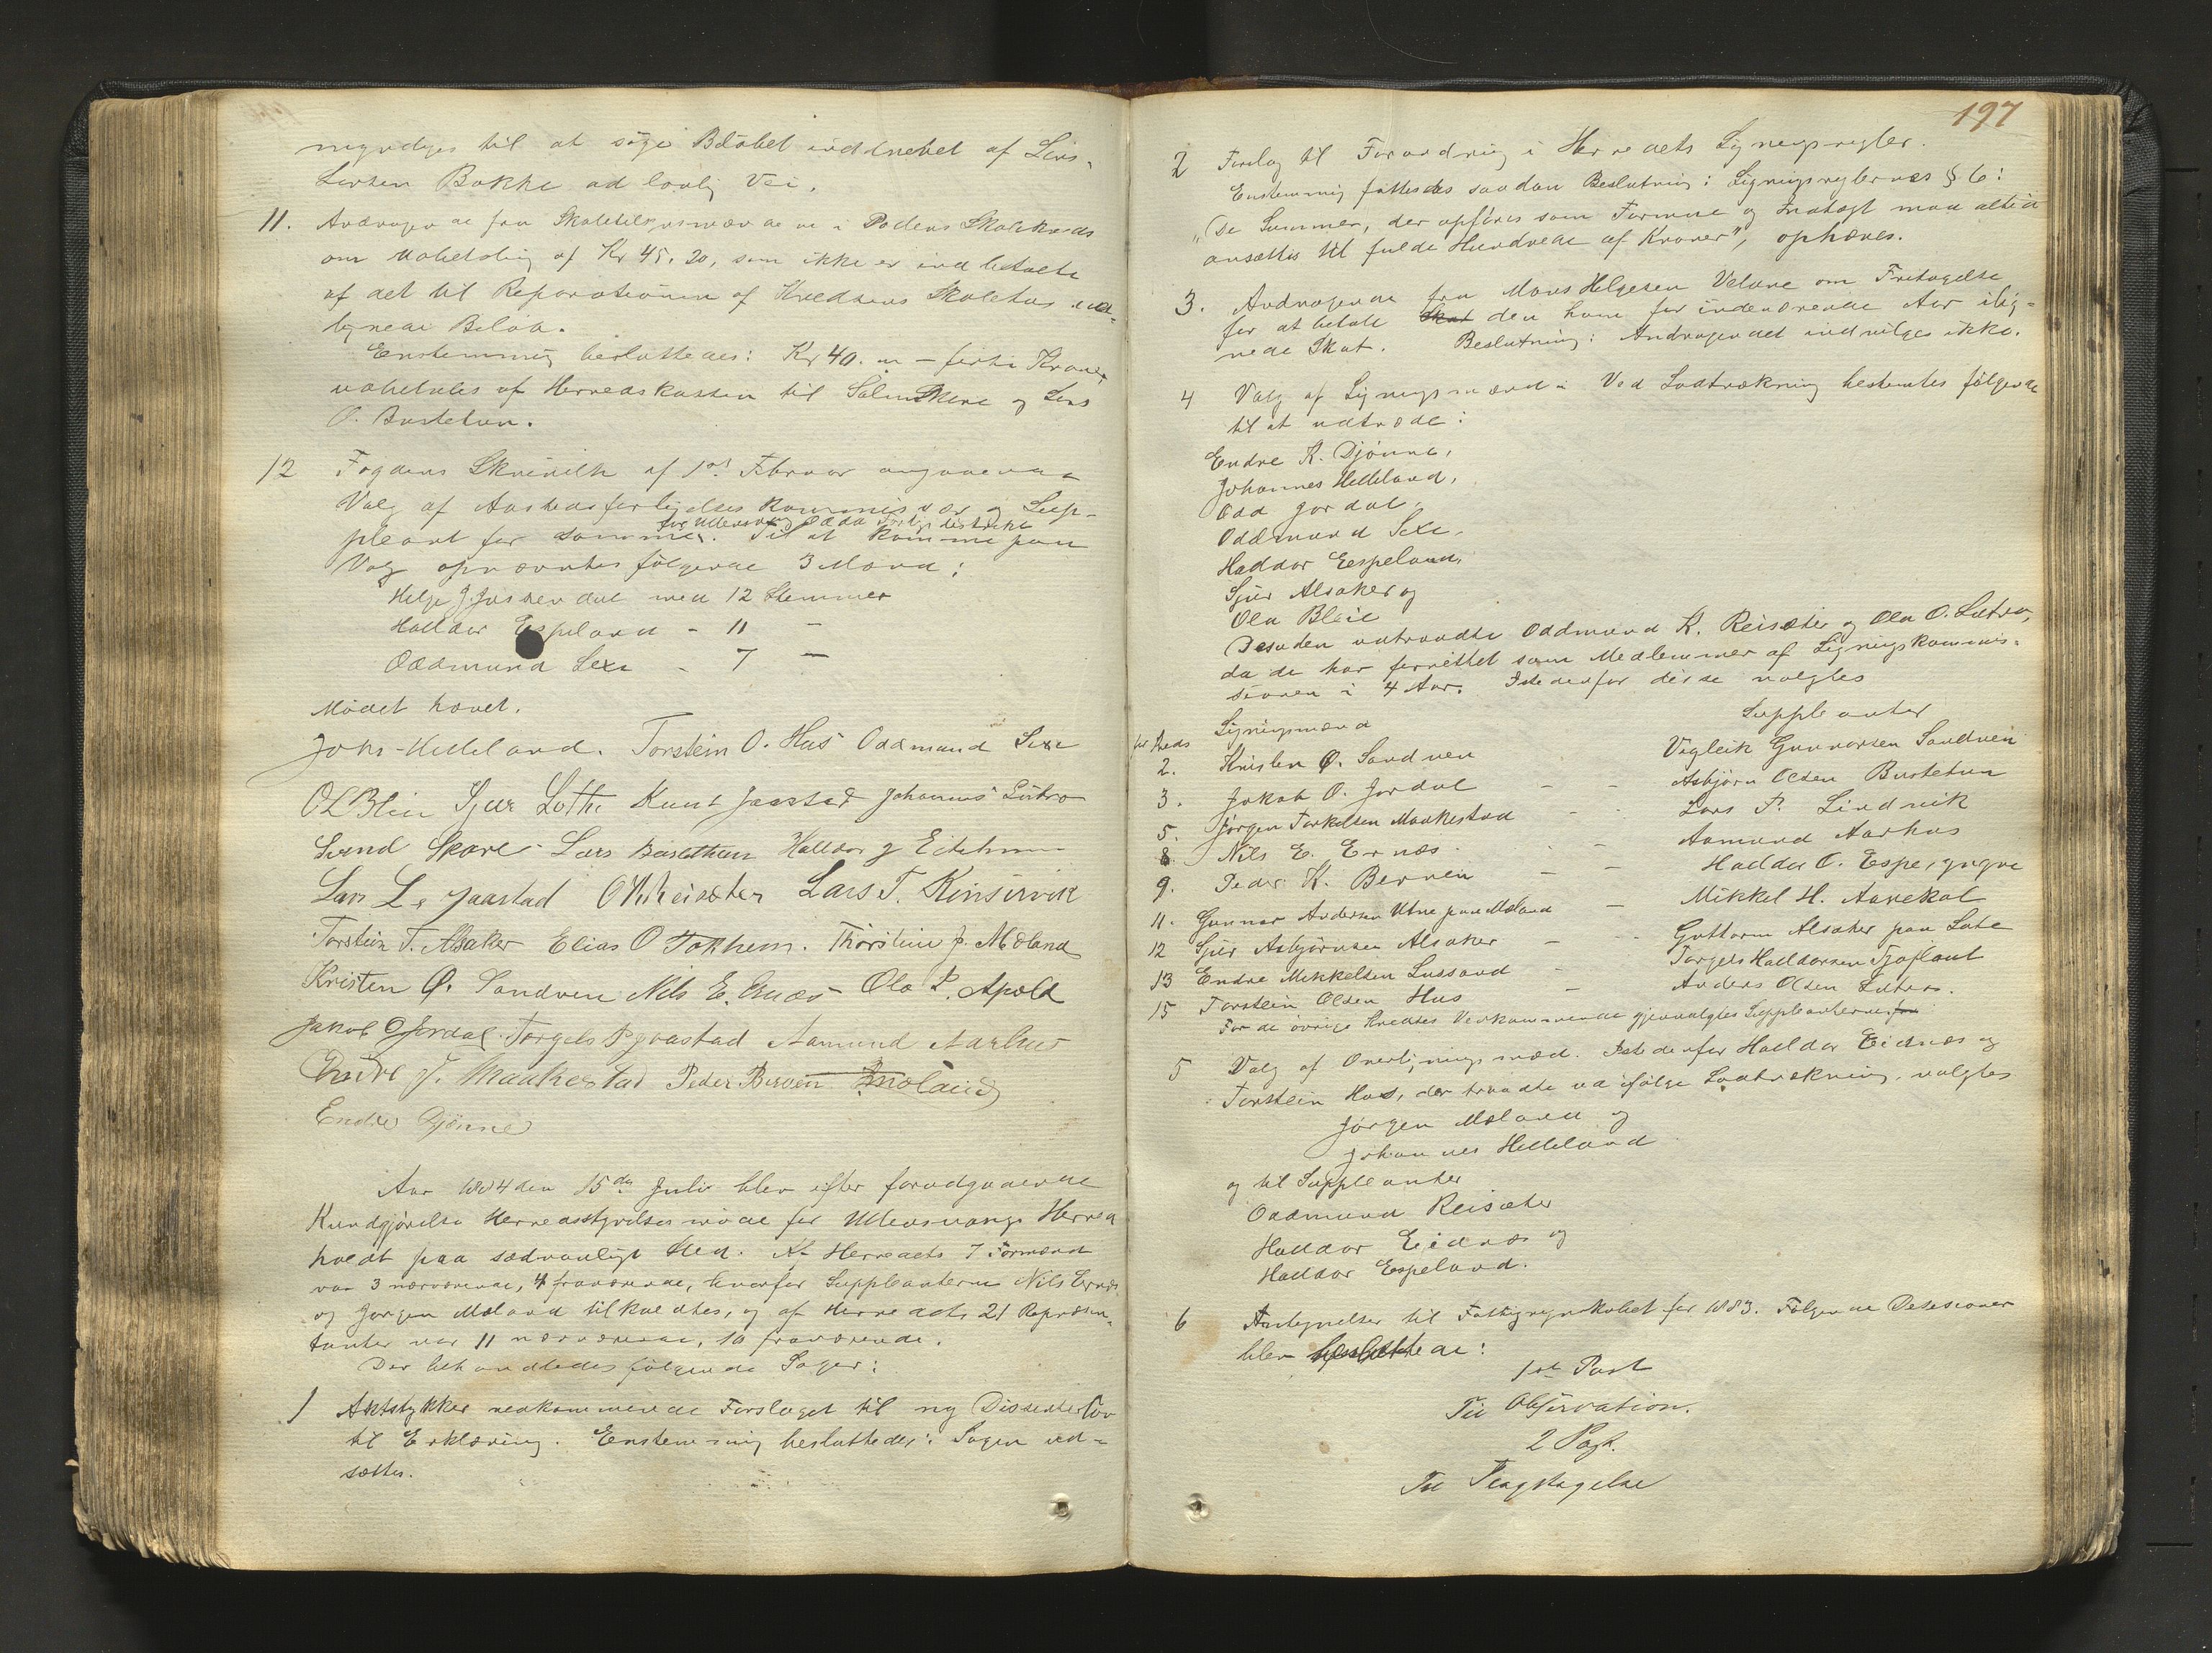 myndiges til at söge Belöbet inddrevet af Lars
Larsen Bakke ad lovlig Vei.
11. Andragende fra Skoletilsynsmændene i Skolekreds
om Udbetaling af Kr 45.20, som ikke er indbetalte
af det til Reparationen af Kredsens Skolehus ud-
lignede Belöb.
Enstemmig besluttedes: Kr 40.00 – förti Kroner
udbetales af Herredskassen til Skare og Lars
O. Bustetun.
12 Fogdens Skrivelse af 1ste Februar angaaende
Valg af Kommissær og Sup-
for Ullensvang Odda
pleant for samme. Til at komme paa
Valg opnævntes fölgende 3 Mænd:
Helge J. Jaasendal med 12 Stemmer
Halldor Espeland – 11 –
Oddmund Sexe – 7 –
Mödet hævet.
Johs Helleland. Torstein O. Hus Oddmund Sexe
O L Bleie Sjur Lothe Knut Jaastad Johannes Lutro
Svend Skare Lars Bustethun Halldor J Eidnes
Lars L. Jaastad O K Reisæter Lars T. Kinservik
Torstein T. Alsaker Elias O Tokheim. Thorstein J. Mæland
Kristen Ø. Sandven Nils E. Ernæs Ola P. Apold
Jakob O Jordal Torgels Aamund Aarhus
Endre J. Maakestad Peder Berven Mæland
Endre Djönne
Aar 1884 den 15de Juli blev efter forudgaaende
Kundgjörelse Herredsstyrelsesmöde for Ullensvangs Herred
holdt paa sædvanligt Sted. Af Herredets 7 Formænd
var 3 nærværende, 4 fraværende, hvorfor Suppleanterne Nils Ernæs
og Jörgen Mæland tilkaldtes, og af Herredets 21 Repræsen-
tanter var 11 nærværende, 10 fraværende.
Der behandledes fölgende Sager:
1 Aktstykker vedkommende Forslaget til ny Dissenterlov
til Erklæring. Enstemmig besluttedes: Sagen ud-
sættes.
197
2 Forslag til Forandring i Herredets Ligningsregler.
Enstemmig fattedes saadan Beslutning: Ligningsreglernes § 6:
"De Summer, der opföres som Formue og Indtægt maa altid
ansættes til fulde Hundrede af Kroner", ophæves.
3. Andragende fra Mons Helgesen Velure om Fritagelse
for at betale Skat den ham for indeværende Aar ilig-
nede Skat. Beslutning: Andragendet indvilges ikke.
4 Valg af Ligningsmænd. Ved Lodtrækning bestemtes fölgende
til at udtræde:
Endre K. Djönne,
Johannes Helleland,
Odd Jordal,
Oddmund Sexe,
Haldor Espeland,
Sjur Alsaker og
Ola Bleie
Desuden udtraadte Oddmund K. Reisæter og Ola O. Lutro,
da de har forrettet som Medlemmer af Ligningskommis-
sionen i 4 Aar. Istedenfor disse valgtes
for Kreds Ligningsmænd Suppleanter
2. Kristen Ø. Sandven Vigleik Gunnarsen Sandven
3. Jakob O. Jordal – – Asbjörn Olsen Bustetun
5. Jörgen Torkelsen Maakestad – Lars P. Lindvik
8. Nils E. Ernæs – – Aamund Aarhus
9. Peder K. Berven – – Haldor O. Espe, yngre
11. Gunnar Andersen Utne paa Mæland – Mikkel H. Aarekol
12 Sjur Asbjörnsen Alsaker – – Guttorm Alsaker paa Lote
13 Endre Mikkelsen Lussand – Torgels Haldorsen Tjoflaat
15 Torstein Olsen Hus – Anders Olsen Lutro.
For de övrige Kredses Vedkommende gjenvalgtes Suppleanterne
5 Valg af Overligningsmænd. Istedenfor Haldor Eidnæs og
Torstein Hus, der traadte ud ifölge Lodtrækning, valgtes
Jörgen Mæland og
Johannes Helleland
og til Suppleanter
Oddmund Reisæter
Haldor Eidnæs og
Haldor Espeland.
6 Antegnelser til Fattigregnskabet for 1883. Fölgende Desisioner
blev besluttede:
1ste Post
Til Observation.
2 Post.
Til Iagttagelse